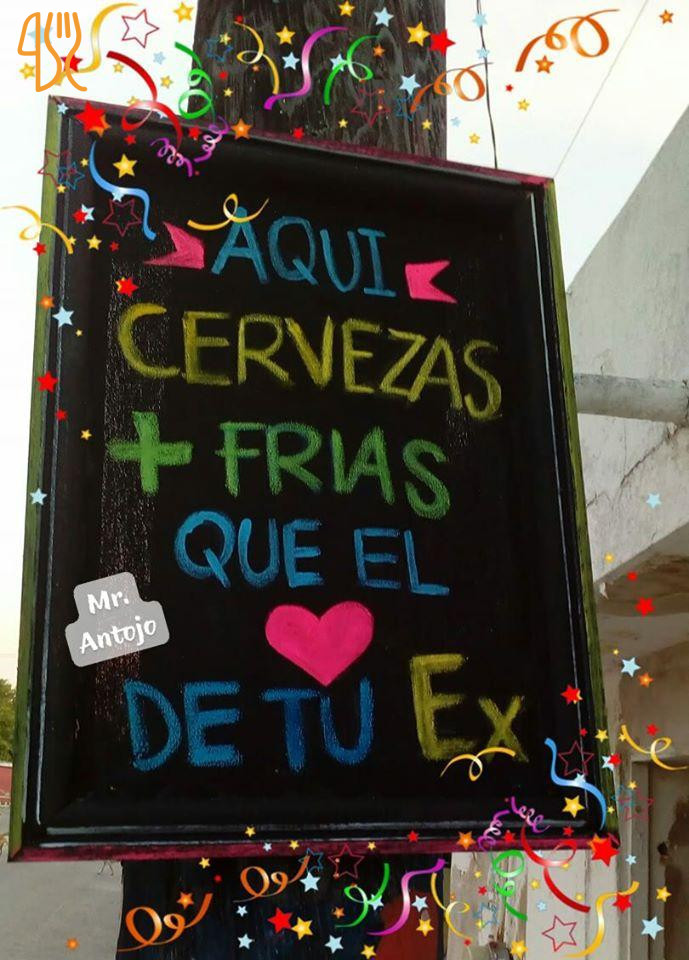 AQUI
CERVEZAS
+ FRIAS
QUE EL
Mr.
Antojo
DE TU Ex